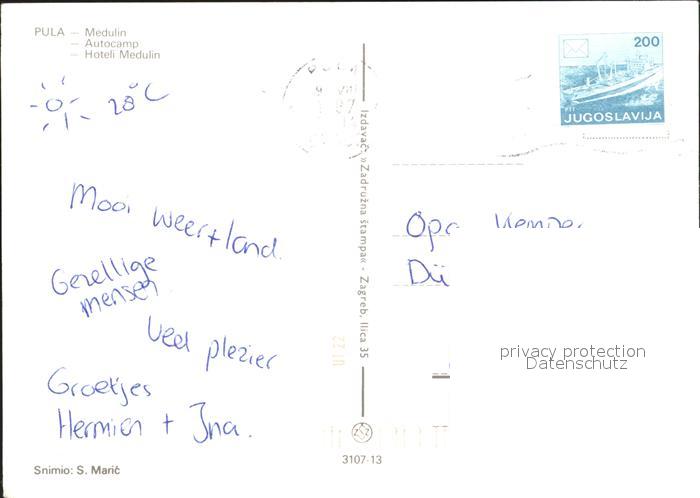 PULA — Medulin
— Autocamp
— Hoteli Medulin
28°C
Mooi weer + land.
Gezellige
mensen.
Veel plezier
Groetjes
Hermien + Ina.
Snimio: S. Marič
Izdavač: »Zadružna štampa« - Zagreb, Ilica 35
3107-13
200
PTT
JUGOSLAVIJA
Opa
Dü
privacy protection
Datenschutz